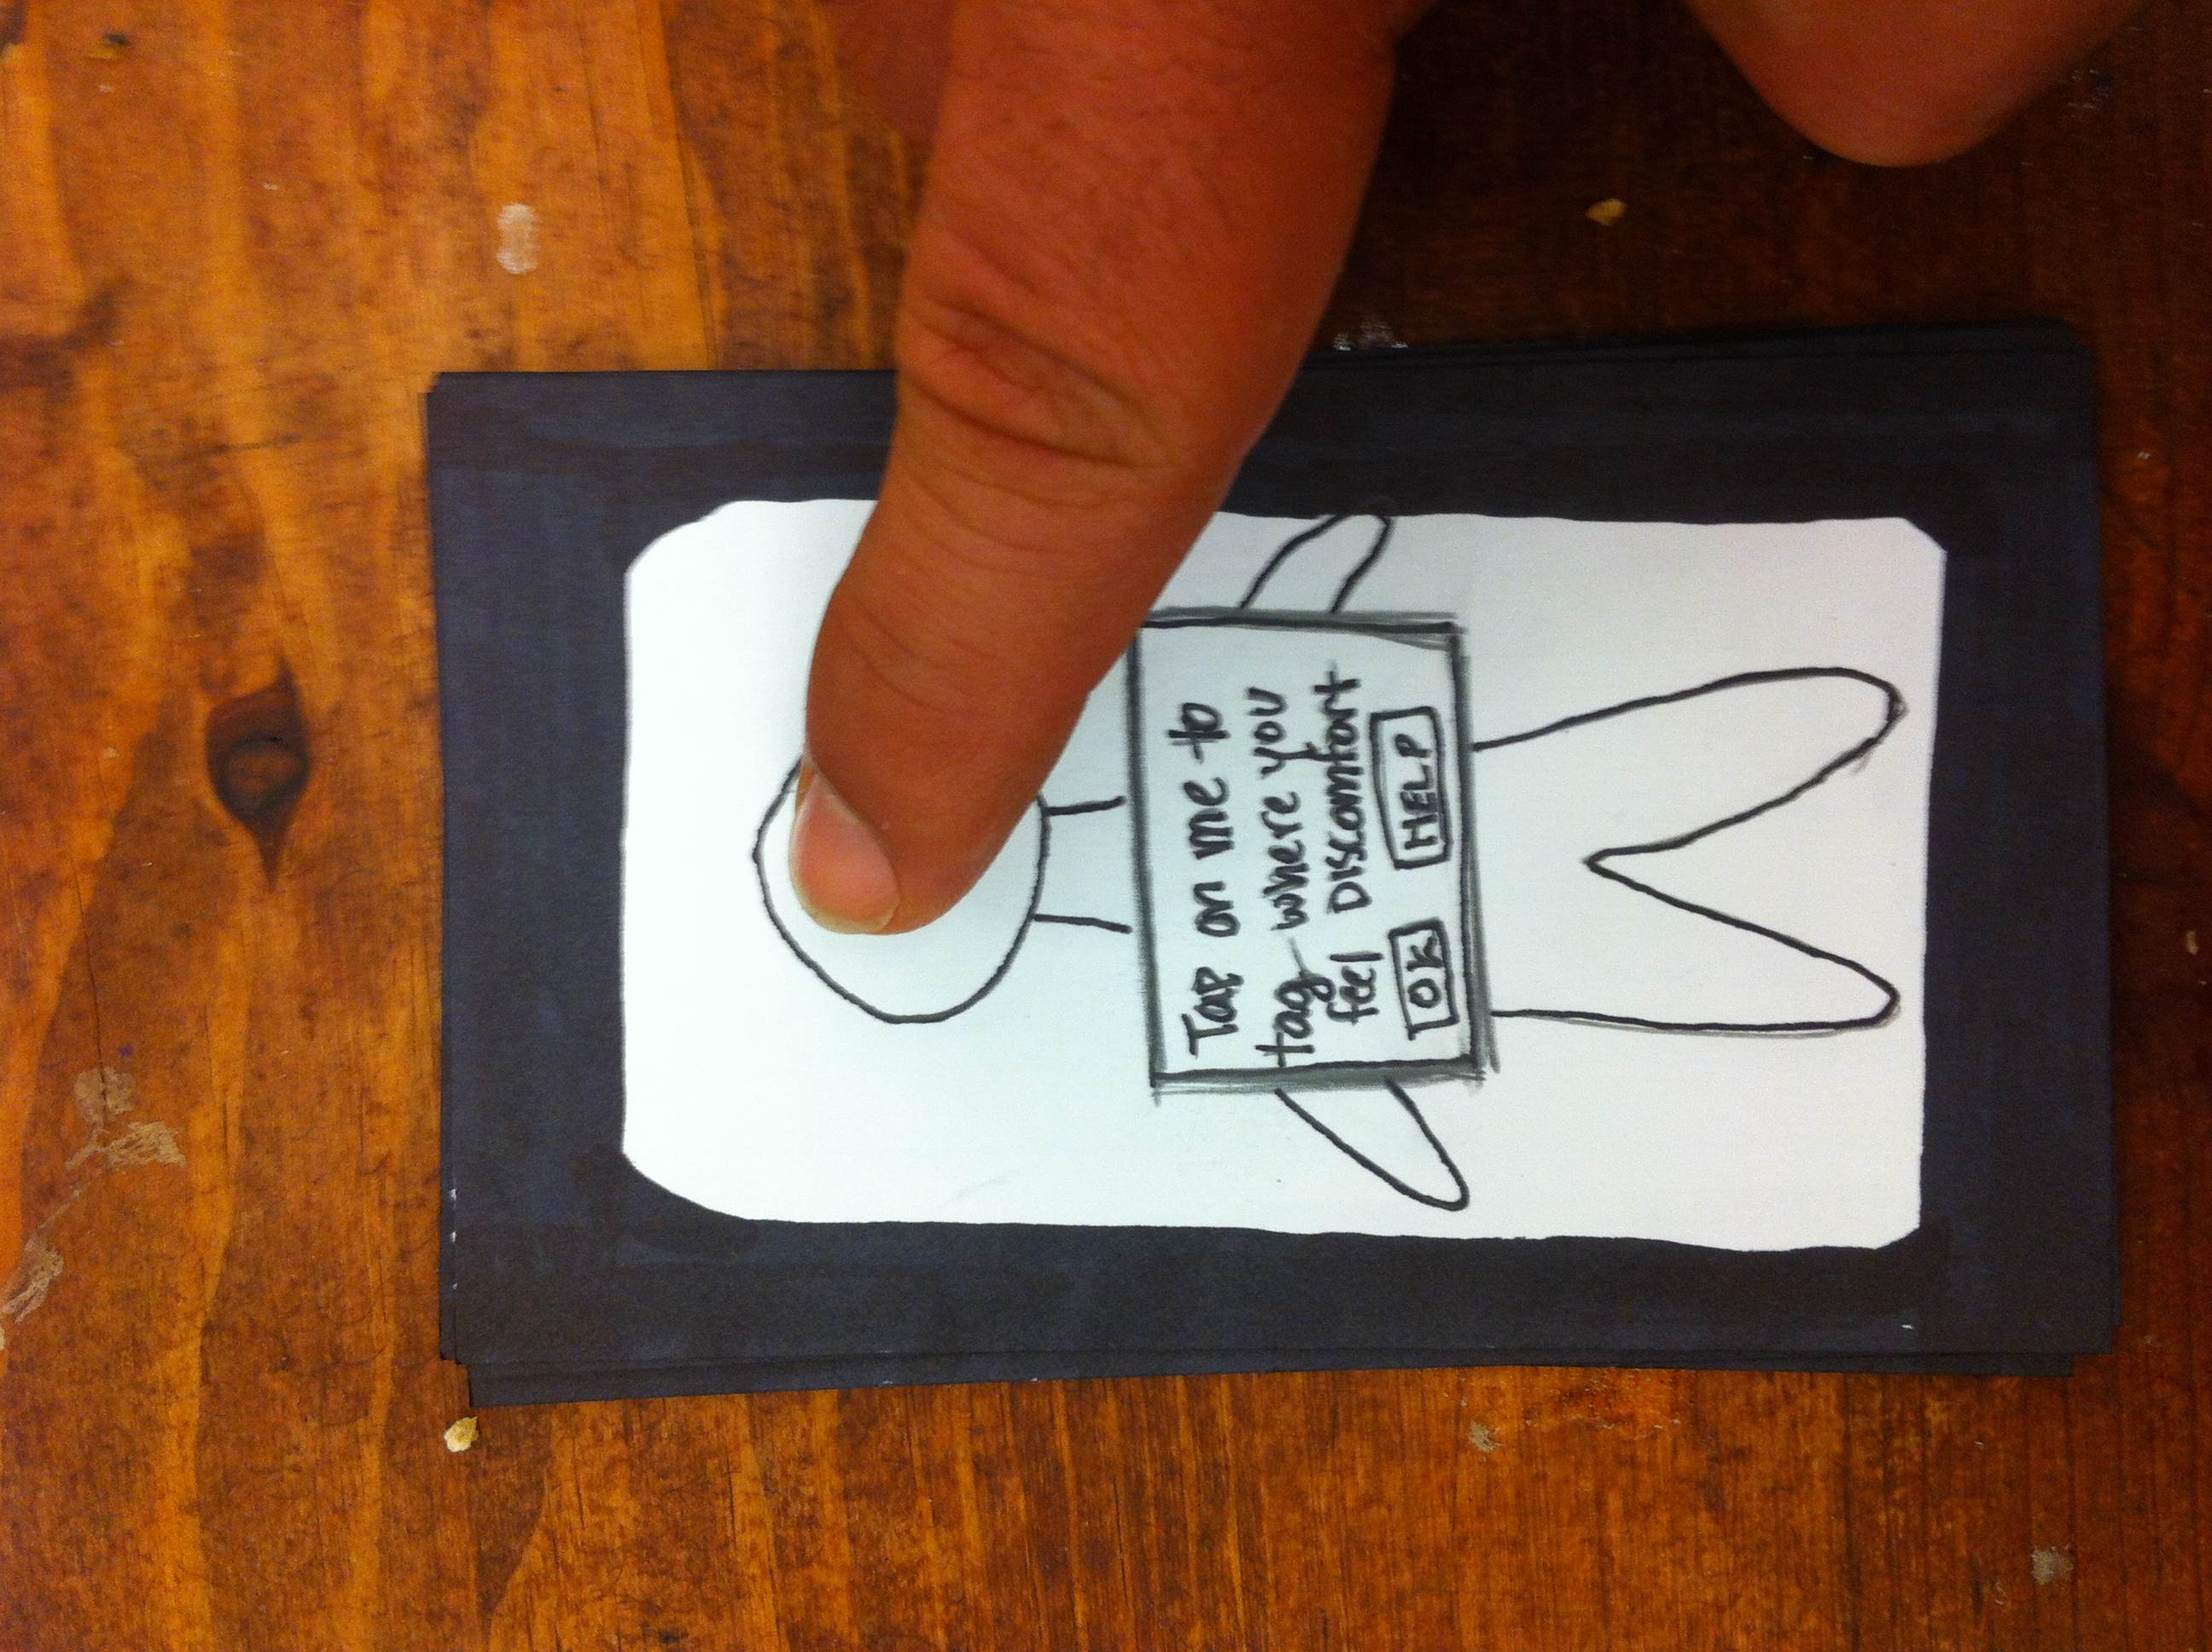 Tap on me to
tag where you
feel Discomfort
OK HELP